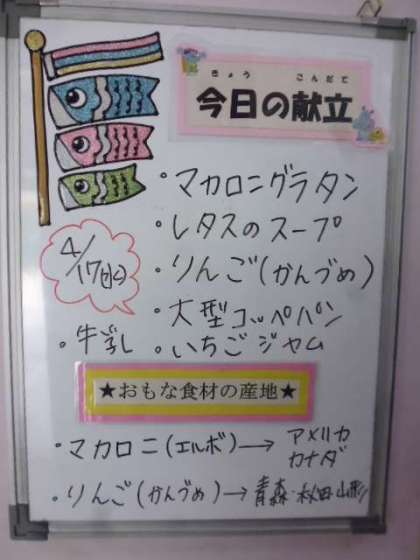 きょう こんだて
今日の献立
・マカロニグラタン
・レタスのスープ
4/17(水)
・りんご(かんづめ)
・大型コッペパン
・牛乳 ・いちごジャム
★おもな食材の産地★
・マカロニ(エルボ)→アメリカ
カナダ
・りんご(かんづめ)→青森・秋田・山形